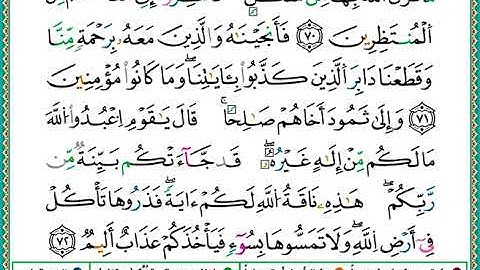 ٱلْمُنتَظِرِينَ ٧٠ فَأَنجَيْنَٰهُ وَٱلَّذِينَ مَعَهُۥ بِرَحْمَةٍ مِّنَّا
وَقَطَعْنَا دَابِرَ ٱلَّذِينَ كَذَّبُوا۟ بِـَٔايَٰتِنَا ۖ وَمَا كَانُوا۟ مُؤْمِنِينَ
٧١ وَإِلَىٰ ثَمُودَ أَخَاهُمْ صَٰلِحًا ۗ قَالَ يَٰقَوْمِ ٱعْبُدُوا۟ ٱللَّهَ
مَا لَكُم مِّنْ إِلَٰهٍ غَيْرُهُۥ ۖ قَدْ جَآءَتْكُم بَيِّنَةٌ مِّن
رَّبِّكُمْ ۖ هَٰذِهِۦ نَاقَةُ ٱللَّهِ لَكُمْ ءَايَةً ۖ فَذَرُوهَا تَأْكُلْ
فِىٓ أَرْضِ ٱللَّهِ ۖ وَلَا تَمَسُّوهَا بِسُوٓءٍ فَيَأْخُذَكُمْ عَذَابٌ أَلِيمٌ ٧٢